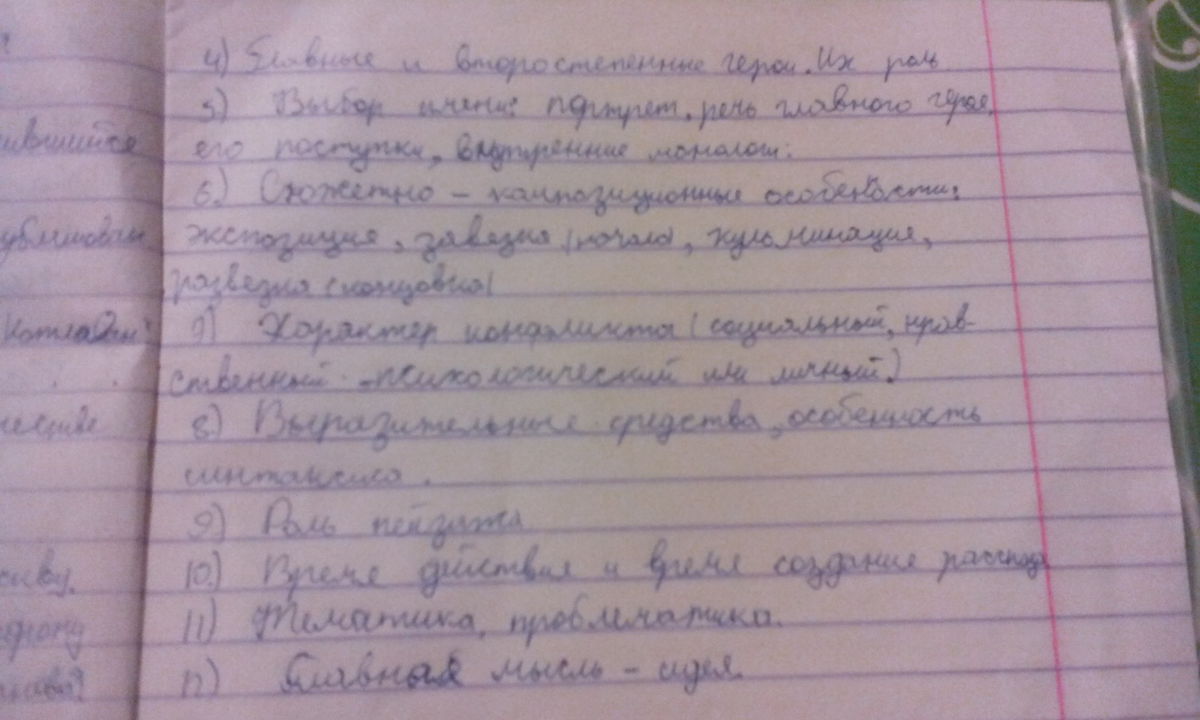 4) Главные и второстепенные герои. Их роль
5) Выбор имени: портрет, речь главного героя,
его поступки, внутренние монологи.
6.) Сюжетно - композиционные особености:
экспозиция, завязка (начало), кульминация,
развязка (концовка)
7) Характер конфликта (социальный, нрав-
ственный -психологический или личный.)
8.) Выразительные средства, особенность
синтаксиса.
9) Роль пейзажа
10.) Время действия и время создание рассказа
11) Тематика, проблематика.
12) Главная мысль - идея.